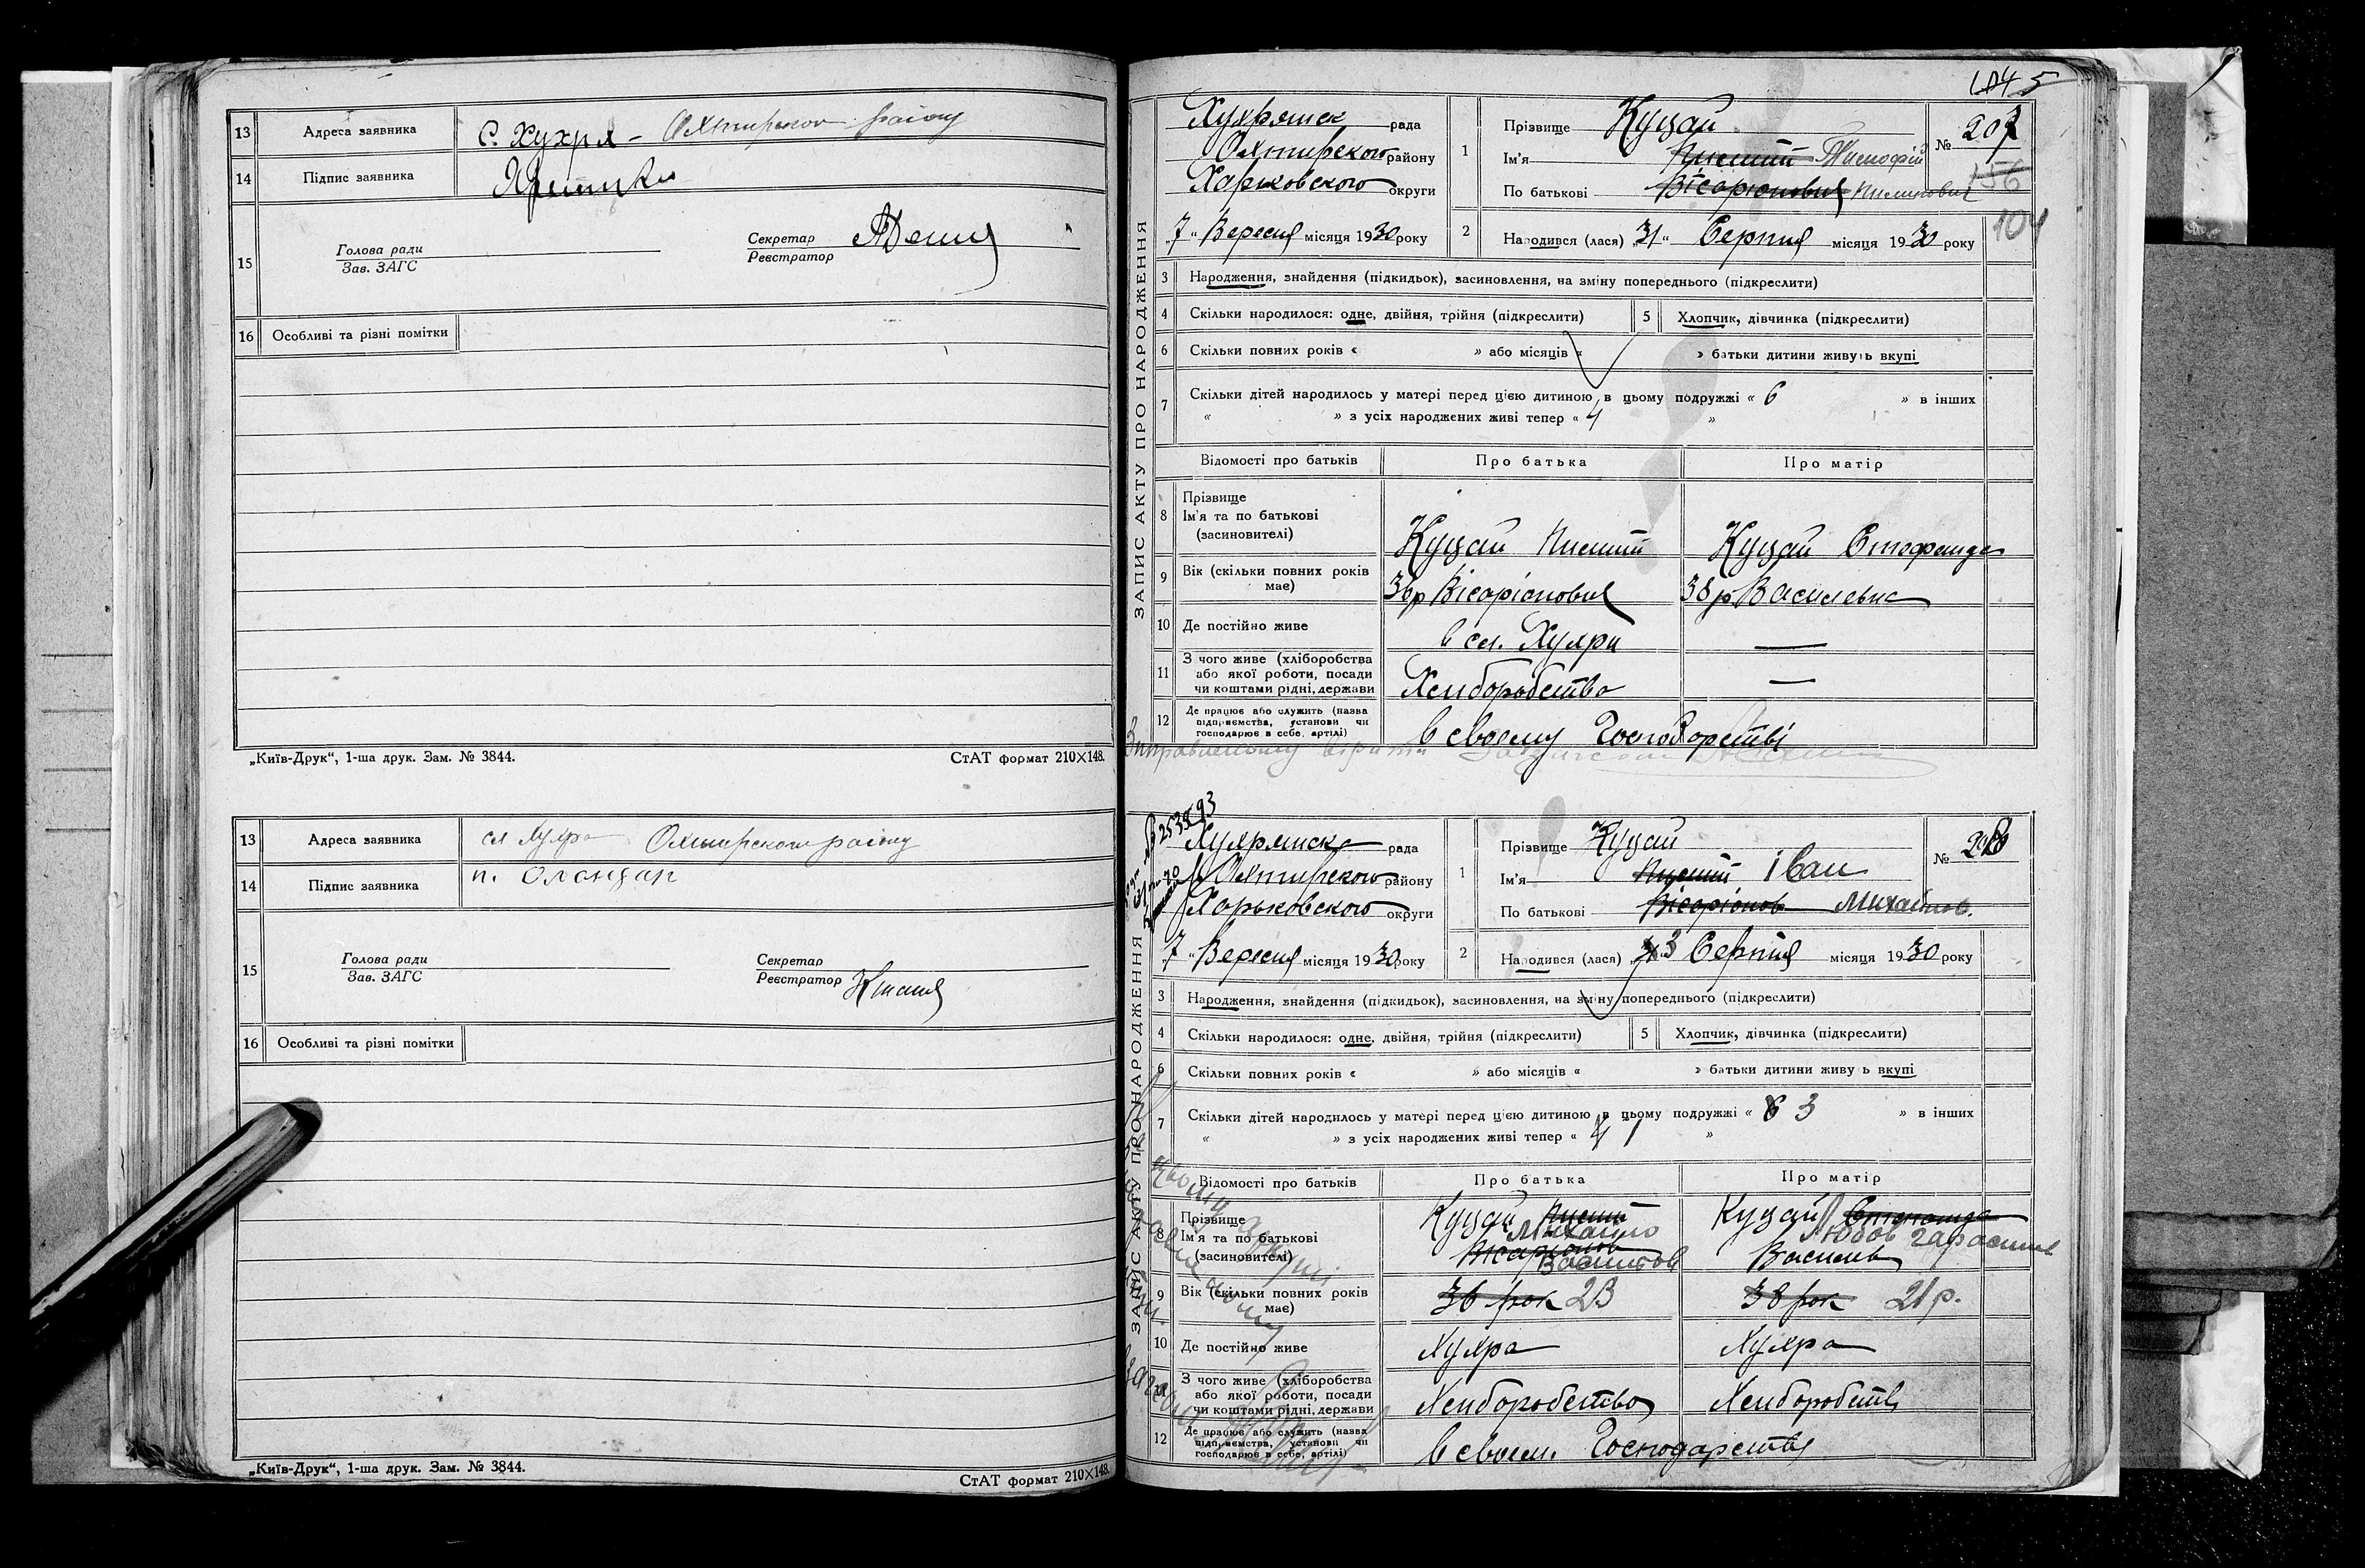 13 Адреса заявника с. Хухря - Охтирського району
14 Підпис заявника
15 Голова ради
Зав. ЗАГС
Секретар
Реєстратор
16 Особливі та різні помітки
„Київ-Друк“, 1-ша друк. Зам. № 3844. СтАТ формат 210×148.
13 Адреса заявника сл Хухра Охтирського району
14 Підпис заявника
15 Голова ради
Зав. ЗАГС
Секретар
Реєстратор
16 Особливі та різні помітки
„Київ-Друк“, 1-ша друк. Зам. № 3844. СтАТ формат 210×148.
ЗАПИС АКТУ ПРО НАРОДЖЕННЯ
Хухрянск рада
Охтирского району
Харьковского округи
„7“ Вересня місяця 1930 року
1 Прізвище Куцай
Ім'я Пистий Тимофій
По батькові Вісаріонович Пистиович
№ 207
156
104
2 Народився (лася) „31“ Серпня місяця 1930 року
3 Народження, знайдення (підкидьок), засиновлення, на зміну попереднього (підкреслити)
4 Скільки народилося: одне, двійня, трійня (підкреслити) 5 Хлопчик, дівчинка (підкреслити)
6 Скільки повних років « » або місяців « » батьки дитини живуть вкупі
7 Скільки дітей народилось у матері перед цією дитиною в цьому подружжі « 6 » в інших
« » з усіх народжених живі тепер « 4 »
Відомості про батьків Про батька Про матір
8 Прізвище
Ім'я та по батькові
(засиновителі)
Куцай Пистий Куцай Стефанида
9 Вік (скільки повних років має) 36р Вісаріонович 38 р. Василевна
10 Де постійно живе в сл. Хухри —
11 З чого живе (хліборобства
або якої роботи, посади
чи коштами рідні, держави Хлиборобство —
12 Де працює або служить (назва
підприємства, установи чи
господарює в себе, артілі) в своєму Господорстві
Виправленому вірити
ЗАПИС АКТУ ПРО НАРОДЖЕННЯ
Хухрянск рада
Охтирского району
Харьковского округи
„7“ Вересня місяця 1930 року
1 Прізвище Куцай
Ім'я Пистий Іван
По батькові Вісаріонов Михайлов.
№ 208
2 Народився (лася) 3 Серпня місяця 1930 року
3 Народження, знайдення (підкидьок), засиновлення, на зміну попереднього (підкреслити)
4 Скільки народилося: одне, двійня, трійня (підкреслити) 5 Хлопчик, дівчинка (підкреслити)
6 Скільки повних років « » або місяців « » батьки дитини живуь вкупі
7 Скільки дітей народилось у матері перед цією дитиною в цьому подружжі « 6 3 » в інших
« » з усіх народжених живі тепер « 4 1 »
Відомості про батьків Про батька Про матір
8 Прізвище
Ім'я та по батькові
(засиновителі)
Куцай Пистий Михайло Вісаріонов Куцай Любов Василев
9 Вік (скільки повних років має) 36 рок 23 38 рок 21 р.
10 Де постійно живе Хухра Хухра
11 З чого живе (хліборобства
або якої роботи, посади
чи коштами рідні, держави Хлиборобство Хлиборобств
12 Де працює або служить (назва
підприємства, установи чи
господарює в себе, артілі) в своем. Господарстві